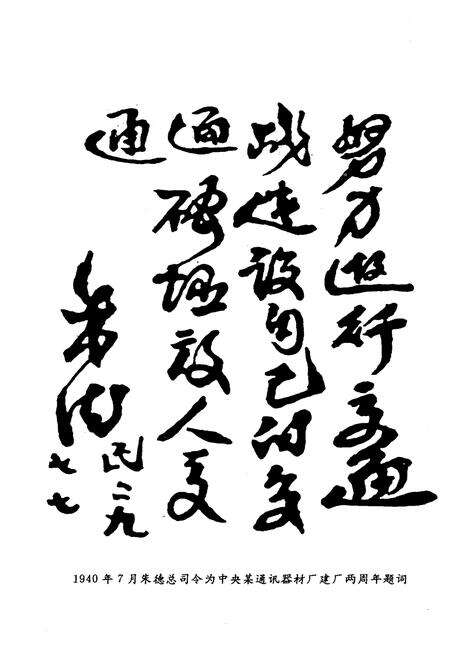 努力进行交通
战建设自己的交
通破坏敌人交
通
朱德
民二九
七七
1940年7月朱德总司令为中央某通讯器材厂建厂两周年题词